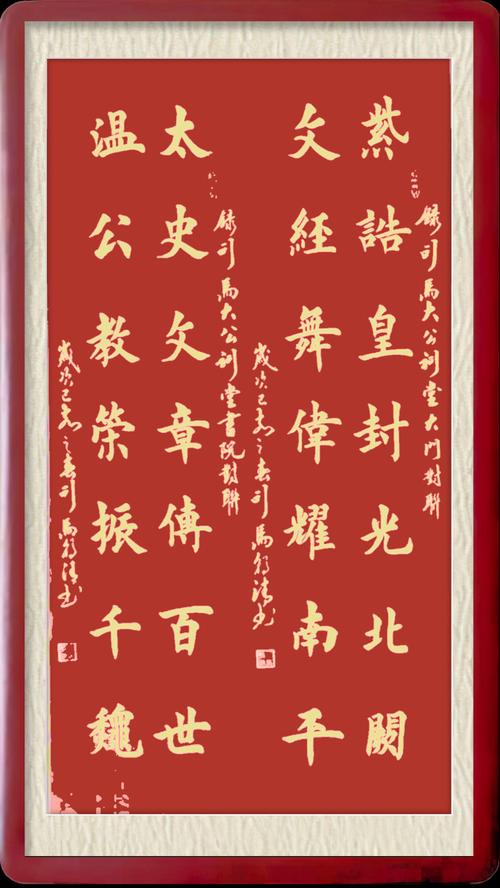 錄司馬大公訓堂大門對聯
紫誥皇封光北闕
文經舞偉耀南平
歲次己亥之春司馬
錄司馬大公訓堂書院對聯
太史文章傳百世
温公教榮振千魏
歲次己亥之春司馬